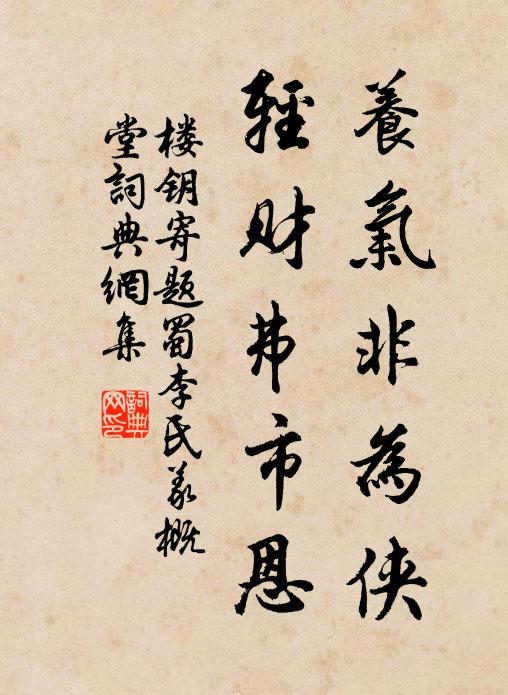 養氣非為俠
輕财弗市恩
楼钥寄题蜀李氏义概
堂詞典網集
詞典
网印